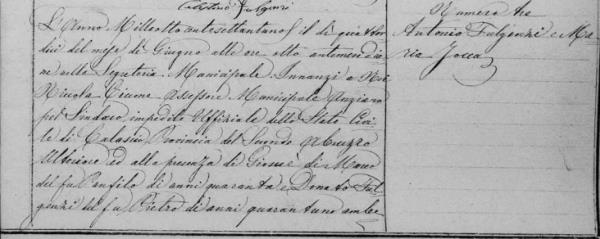 Celestino Fulgenzi
L'Anno Milleottocentosettantanove il dì quattor
dici del mese di Giugno alle ore otto antemeridia
ne nella Segreteria Municipale Innanzi a Noi
Nicola Ciccone Assessore Municipale Anziano
pel Sindaco impedito Uffiziale dello Stato Civi
le di Calascio Provincia del Secondo Abruzzo
Ulteriore ed alla presenza di Giosuè di Marco
del fu Panfilo di anni quaranta e Donato Ful
genzi del fu Pietro di anni quarantuno ambe
Numero tre
Antonio Fulgenzi e Ma
ria Jocca